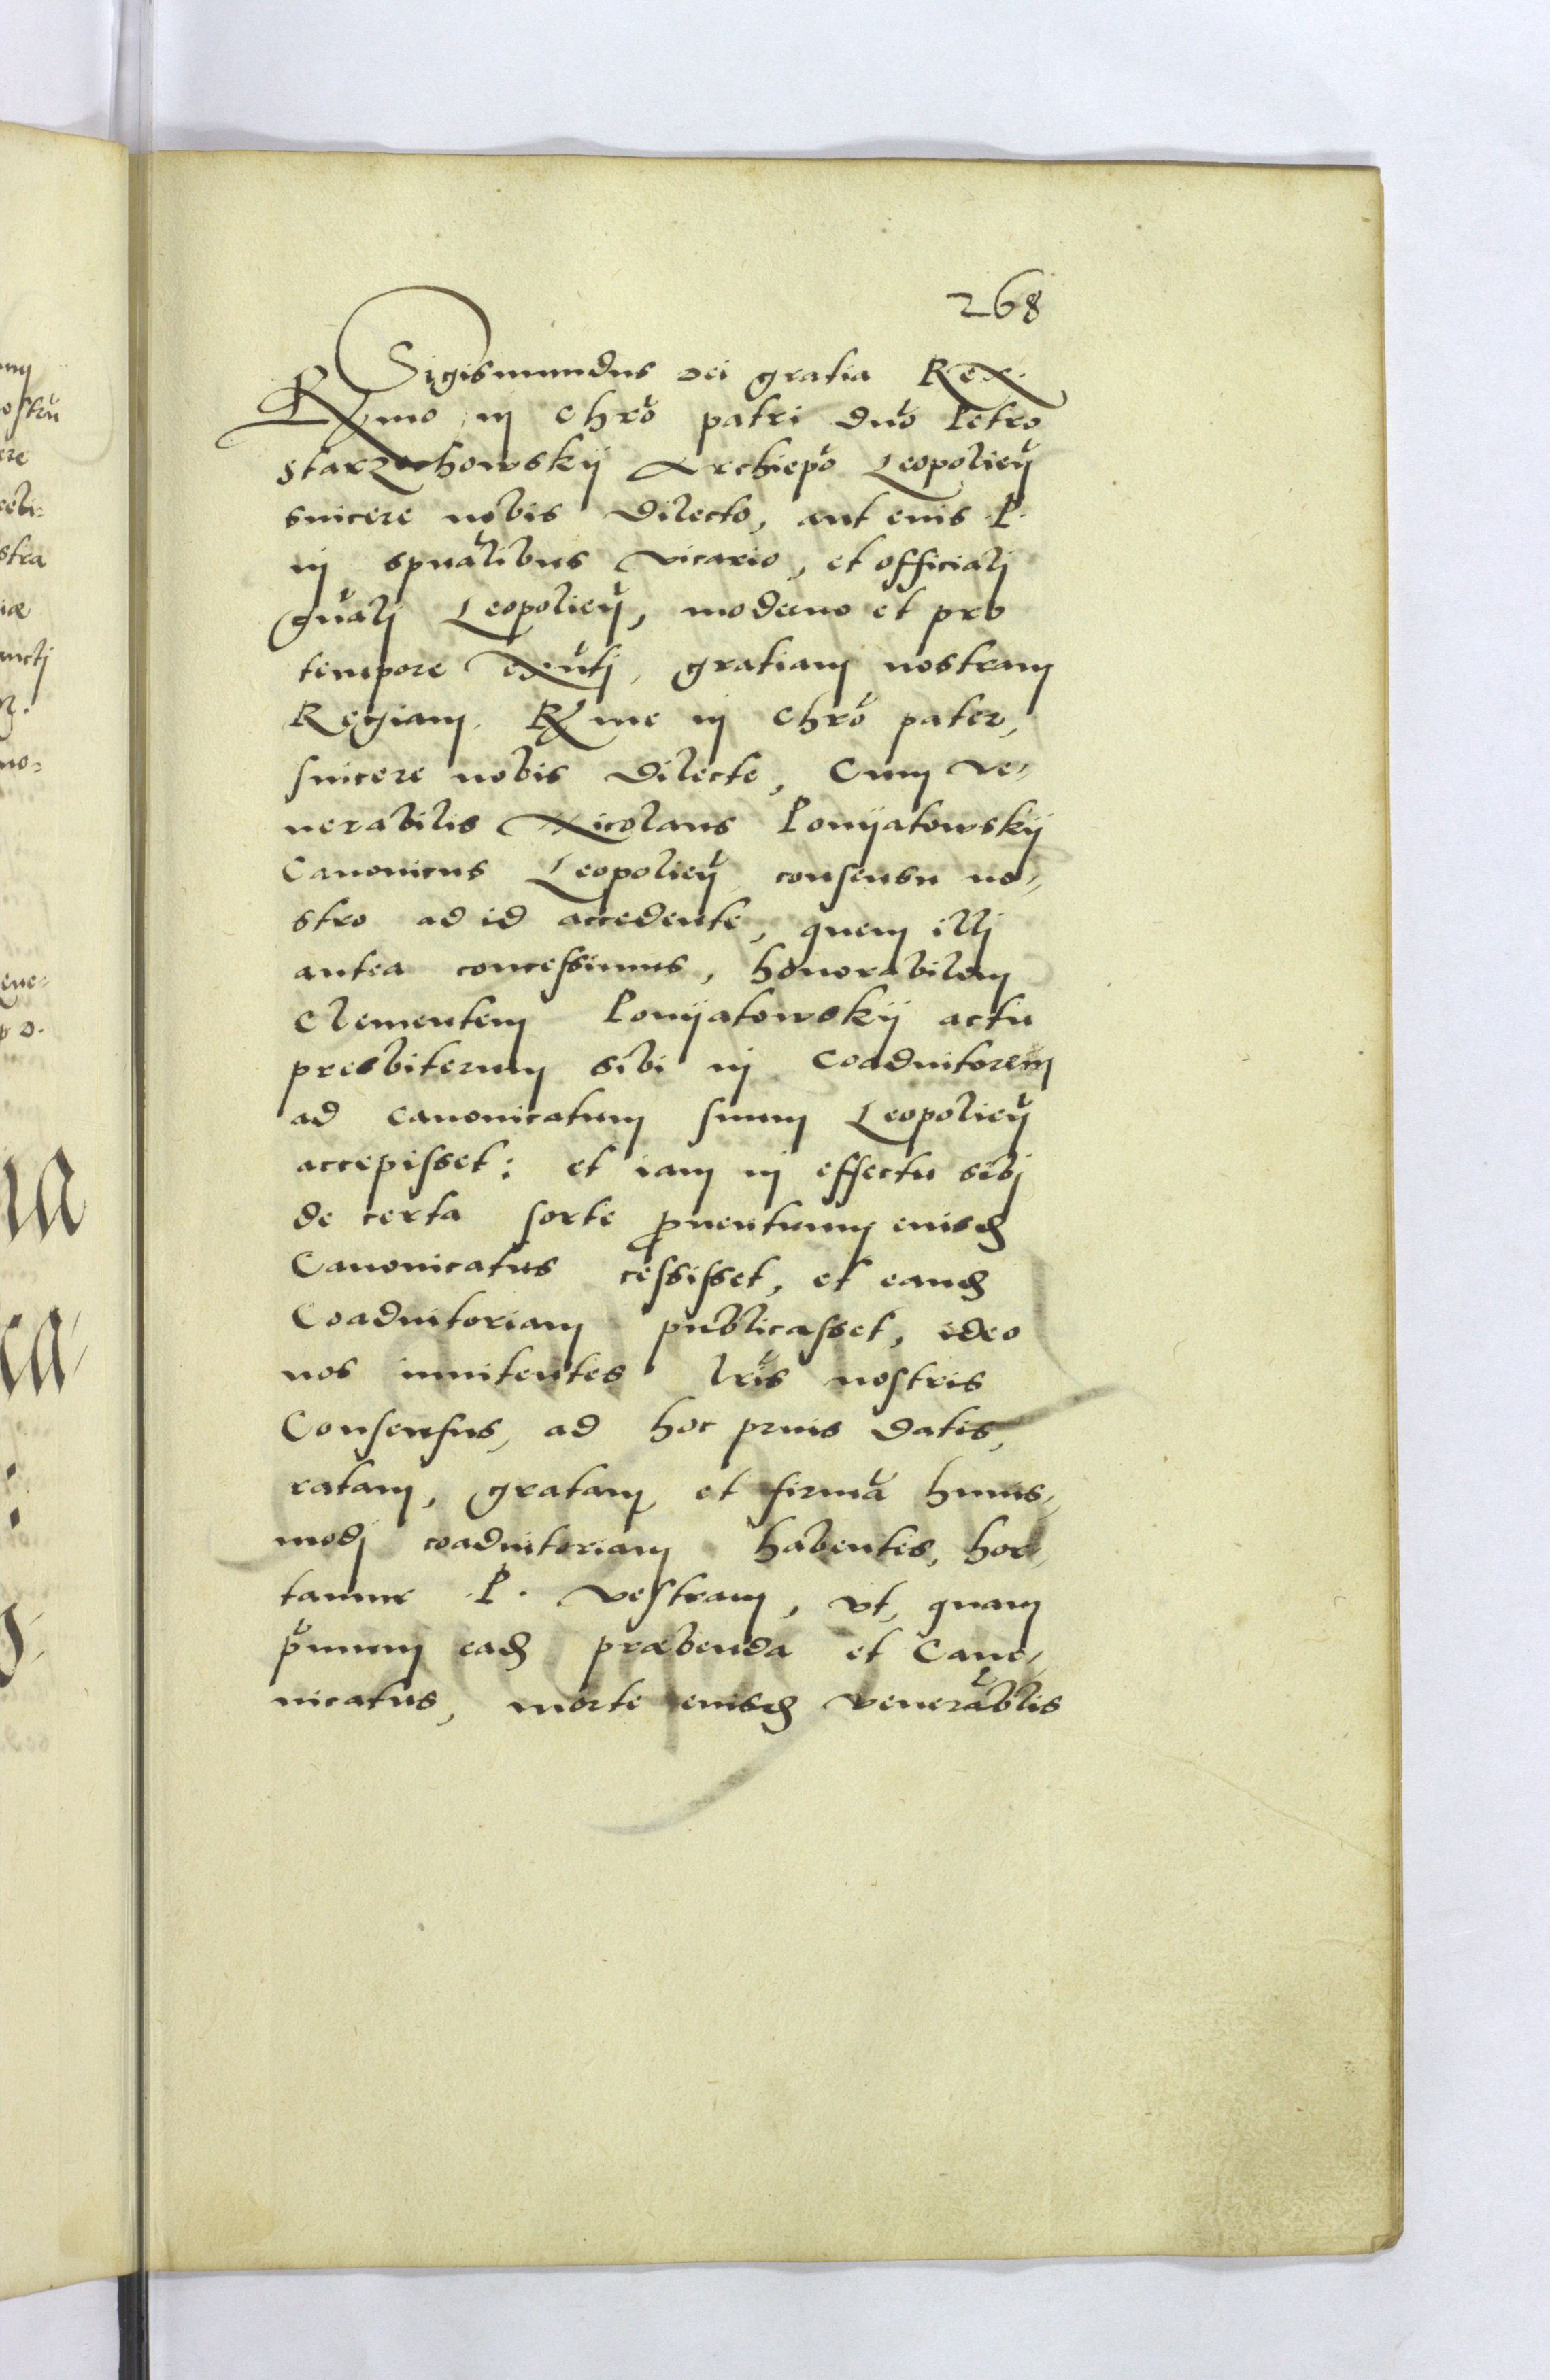 268
Sigismundus dei gratia Rex.
Rx̃mo in chrõ patri dnõ Petro
Starzechowskÿ Archiepõ Leopolieñ
sincere nobis dilecto, aut eius .P.
in spũalibus vicario, et officialj
gñalj Leopolieñ, moderno et pro
tempore exñtj, gratiam nostram
Regiam. Rx̃me in chrõ pater,
sincere nobis dilecte, Cum ve-
nerabilis Nicolaus Ponÿatowskÿ
Canonicus Leopolieñ consensu no-
stro ad id accedente, quem illj
antea concessimus, honorabilem
Clementem Ponÿatowskÿ actu
presbiterum sibi in Coadiutorem
ad Canonicatum suum Leopolieñ
accepisset: et iam in effectu sibj
de certa sorte ꝓuentuum eiusd̃
Canonicatus cessisset, et eand̃
Coadiutoriam publicasset, ideo
nos innitentes lrĩs nostris
Consensus, ad hoc prius datis,
ratam, gratam et firmã huius-
modj coadiutoriam habentes, hor-
tamur .P. vestram, vt, quam
p̃mum ead̃ præbenda et Cano-
nicatus, morte eiusd̃ venerãblis